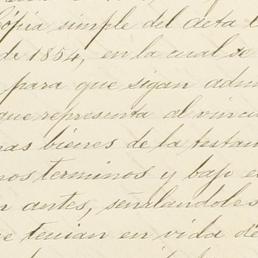 copia simple del acta
de 1854, en la cual se
para que sigan adm
que representa al vincu
nas bienes de la testam
nos terminos y bajo e
antes, señalandoles
e tenian en vida d